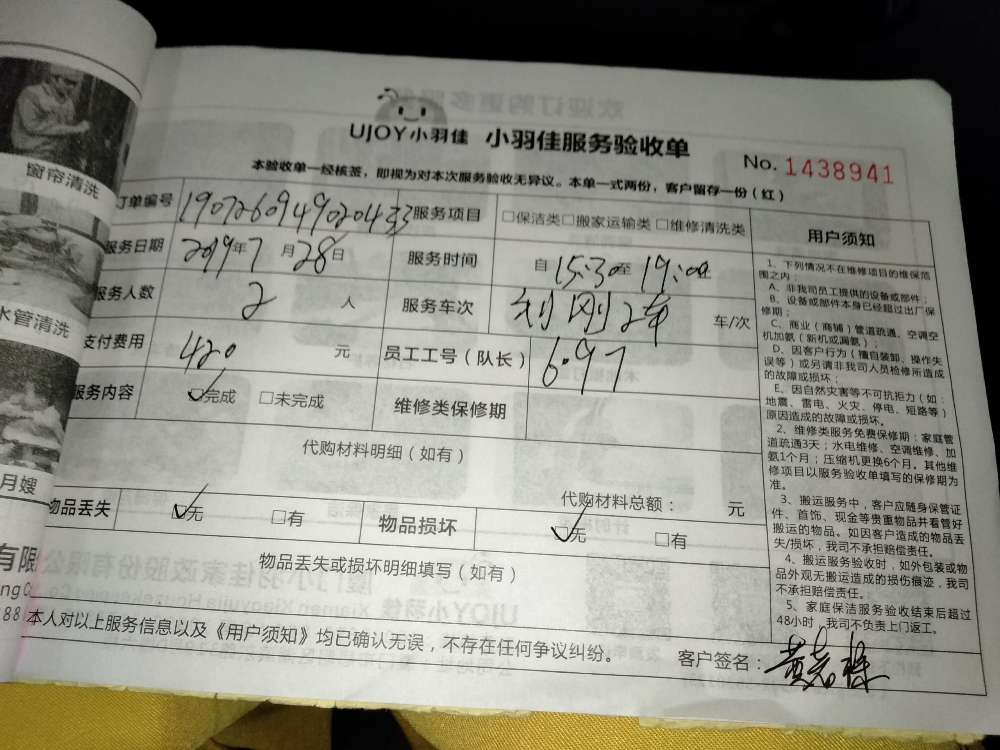 窗帘清洗
水管清洗
月嫂
有限
UJOY小羽佳 小羽佳服务验收单
No. 1438941
本验收单一经核签，即视为对本次服务验收无异议。本单一式两份，客户留存一份（红）
订单编号 服务项目 □保洁类□搬家运输类□维修清洗类
服务日期 2019年7月28日 服务时间 自15:30至19:00
服务人数 2人 服务车次 刘刚2车 车/次
支付费用 420元 员工工号（队长） 6097
服务内容 ☑完成 □未完成 维修类保修期
代购材料明细（如有）
代购材料总额： 元
物品丢失 ☑无 □有 物品损坏 ☑无 □有
物品丢失或损坏明细填写（如有）
本人对以上服务信息以及《用户须知》均已确认无误，不存在任何争议纠纷。 客户签名：
用户须知
1、下列情况不在维修项目的维保范
围之内：
A、非我司员工提供的设备或部件；
B、设备或部件本身已经超过出厂保
修期；
C、商业（商铺）管道疏通、空调空
机加氨（新机或漏氨）；
D、因客户行为（擅自装卸、操作失
误等）或另请非我司人员检修所造成
的故障或损坏；
E、因自然灾害等不可抗拒力（如：
地震、雷电、火灾、停电、短路等）
原因造成的故障或损坏。
2、维修类服务免费保修期：家庭管
道疏通3天；水电维修、空调维修、加
氨1个月；压缩机更换6个月。其他维
修项目以服务验收单填写的保修期为
准。
3、搬运服务中，客户应随身保管证
件、首饰、现金等贵重物品并看管好
搬运的物品。如因客户造成的物品丢
失/损坏，我司不承担赔偿责任。
4、搬运服务验收时，如外包装或物
品外观无搬运造成的损伤痕迹，我司
不承担赔偿责任。
5、家庭保洁服务验收结束后超过
48小时，我司不负责上门返工。